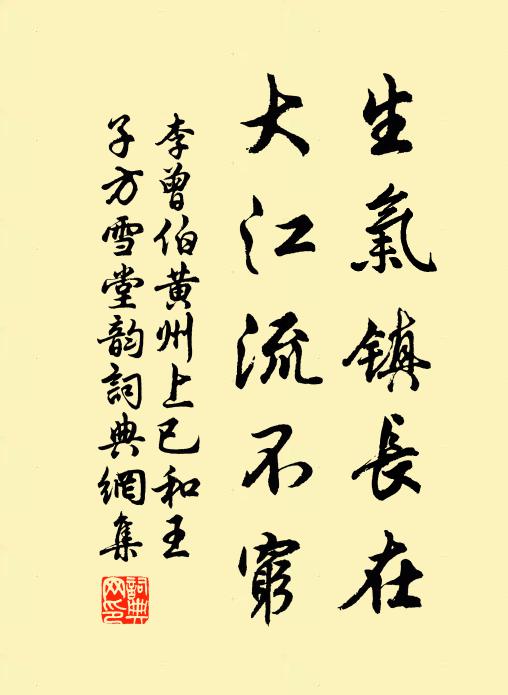 生氣鎮長在
大江流不窮
李曾伯黄州上巳和王
子方雪堂韵詞典網集
詞典網印